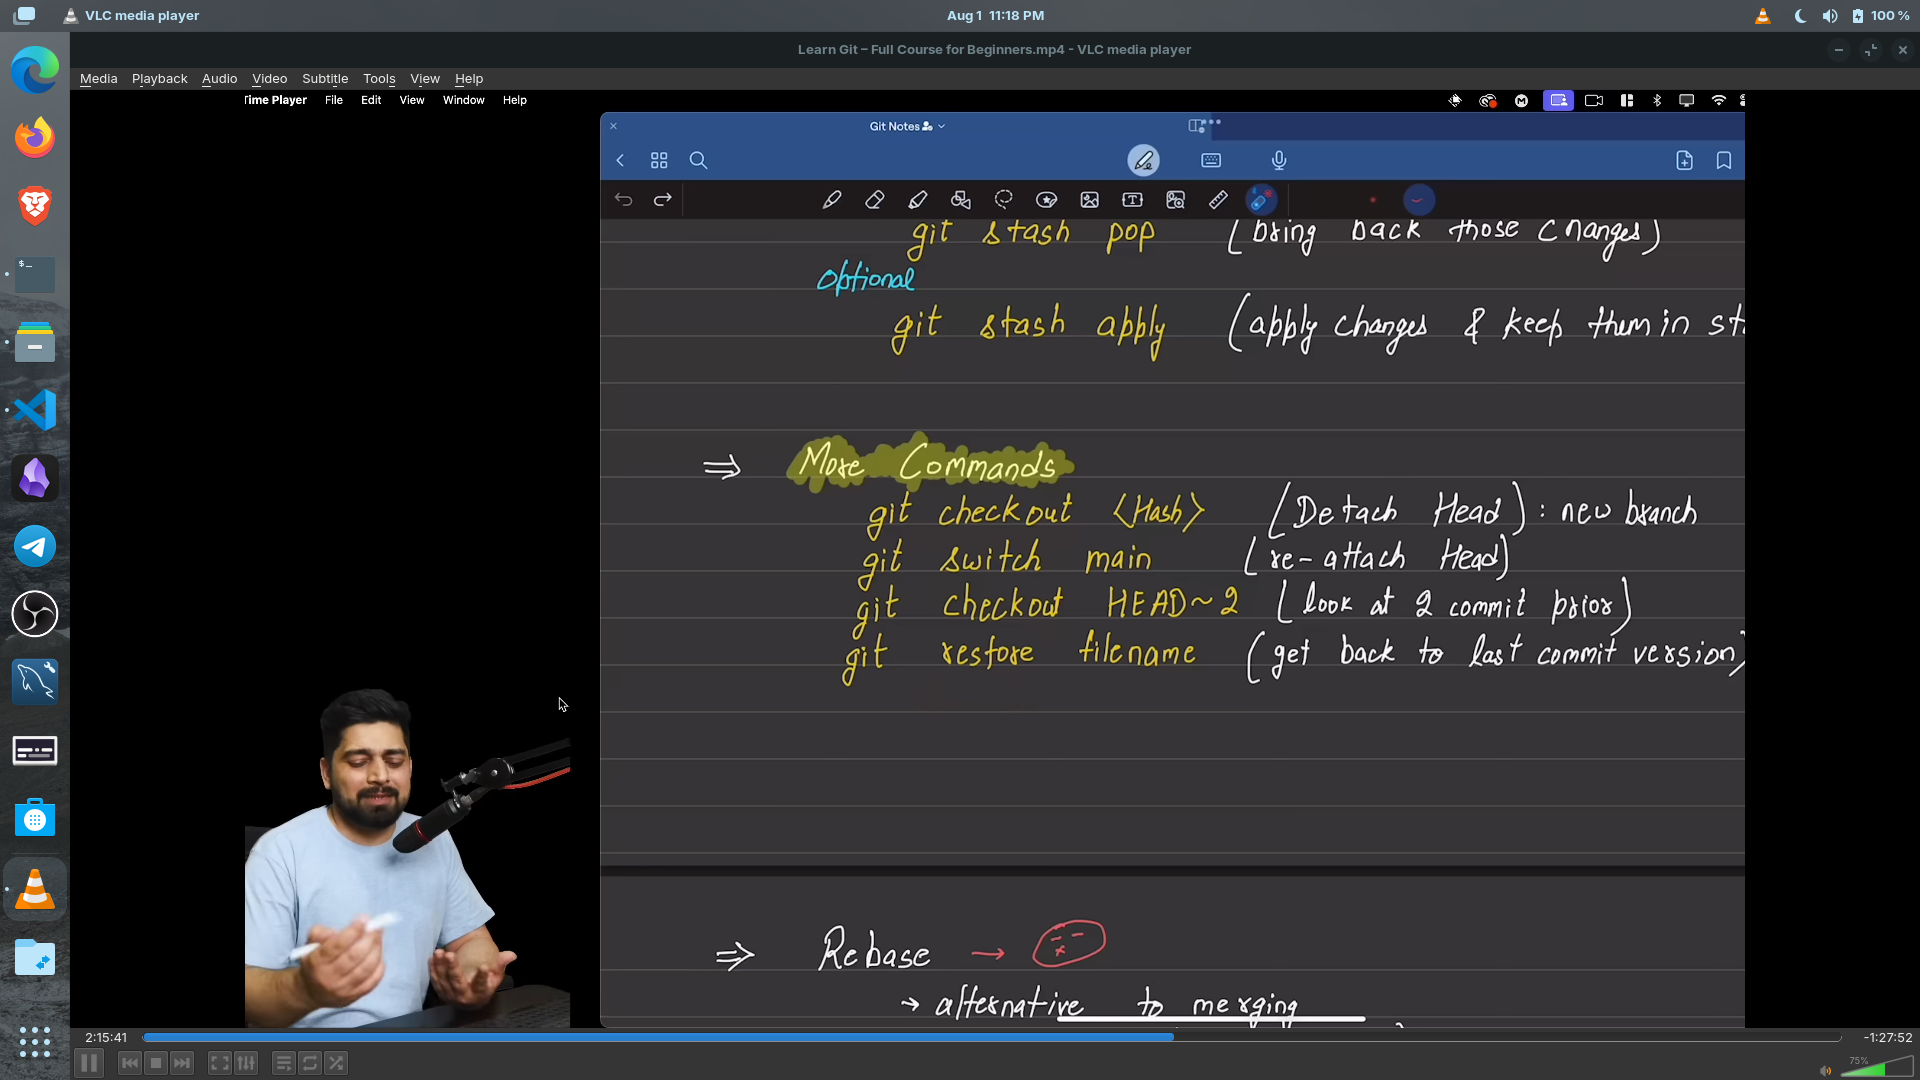 VLC media player
Aug 1 11:18 PM
100 %
Learn Git – Full Course for Beginners.mp4 - VLC media player
Media Playback Audio Video Subtitle Tools View Help
Time Player File Edit View Window Help
Git Notes
git stash pop (bring back those changes)
optional
git stash apply (apply changes & keep them in
⇒ More Commands
git checkout <Hash> (Detach Head) : new branch
git switch main (re-attach Head)
git checkout HEAD~2 (look at 2 commit prior)
git restore filename (get back to last commit version)
⇒ Rebase →
→ alternative to merging
2:15:41
-1:27:52
75%